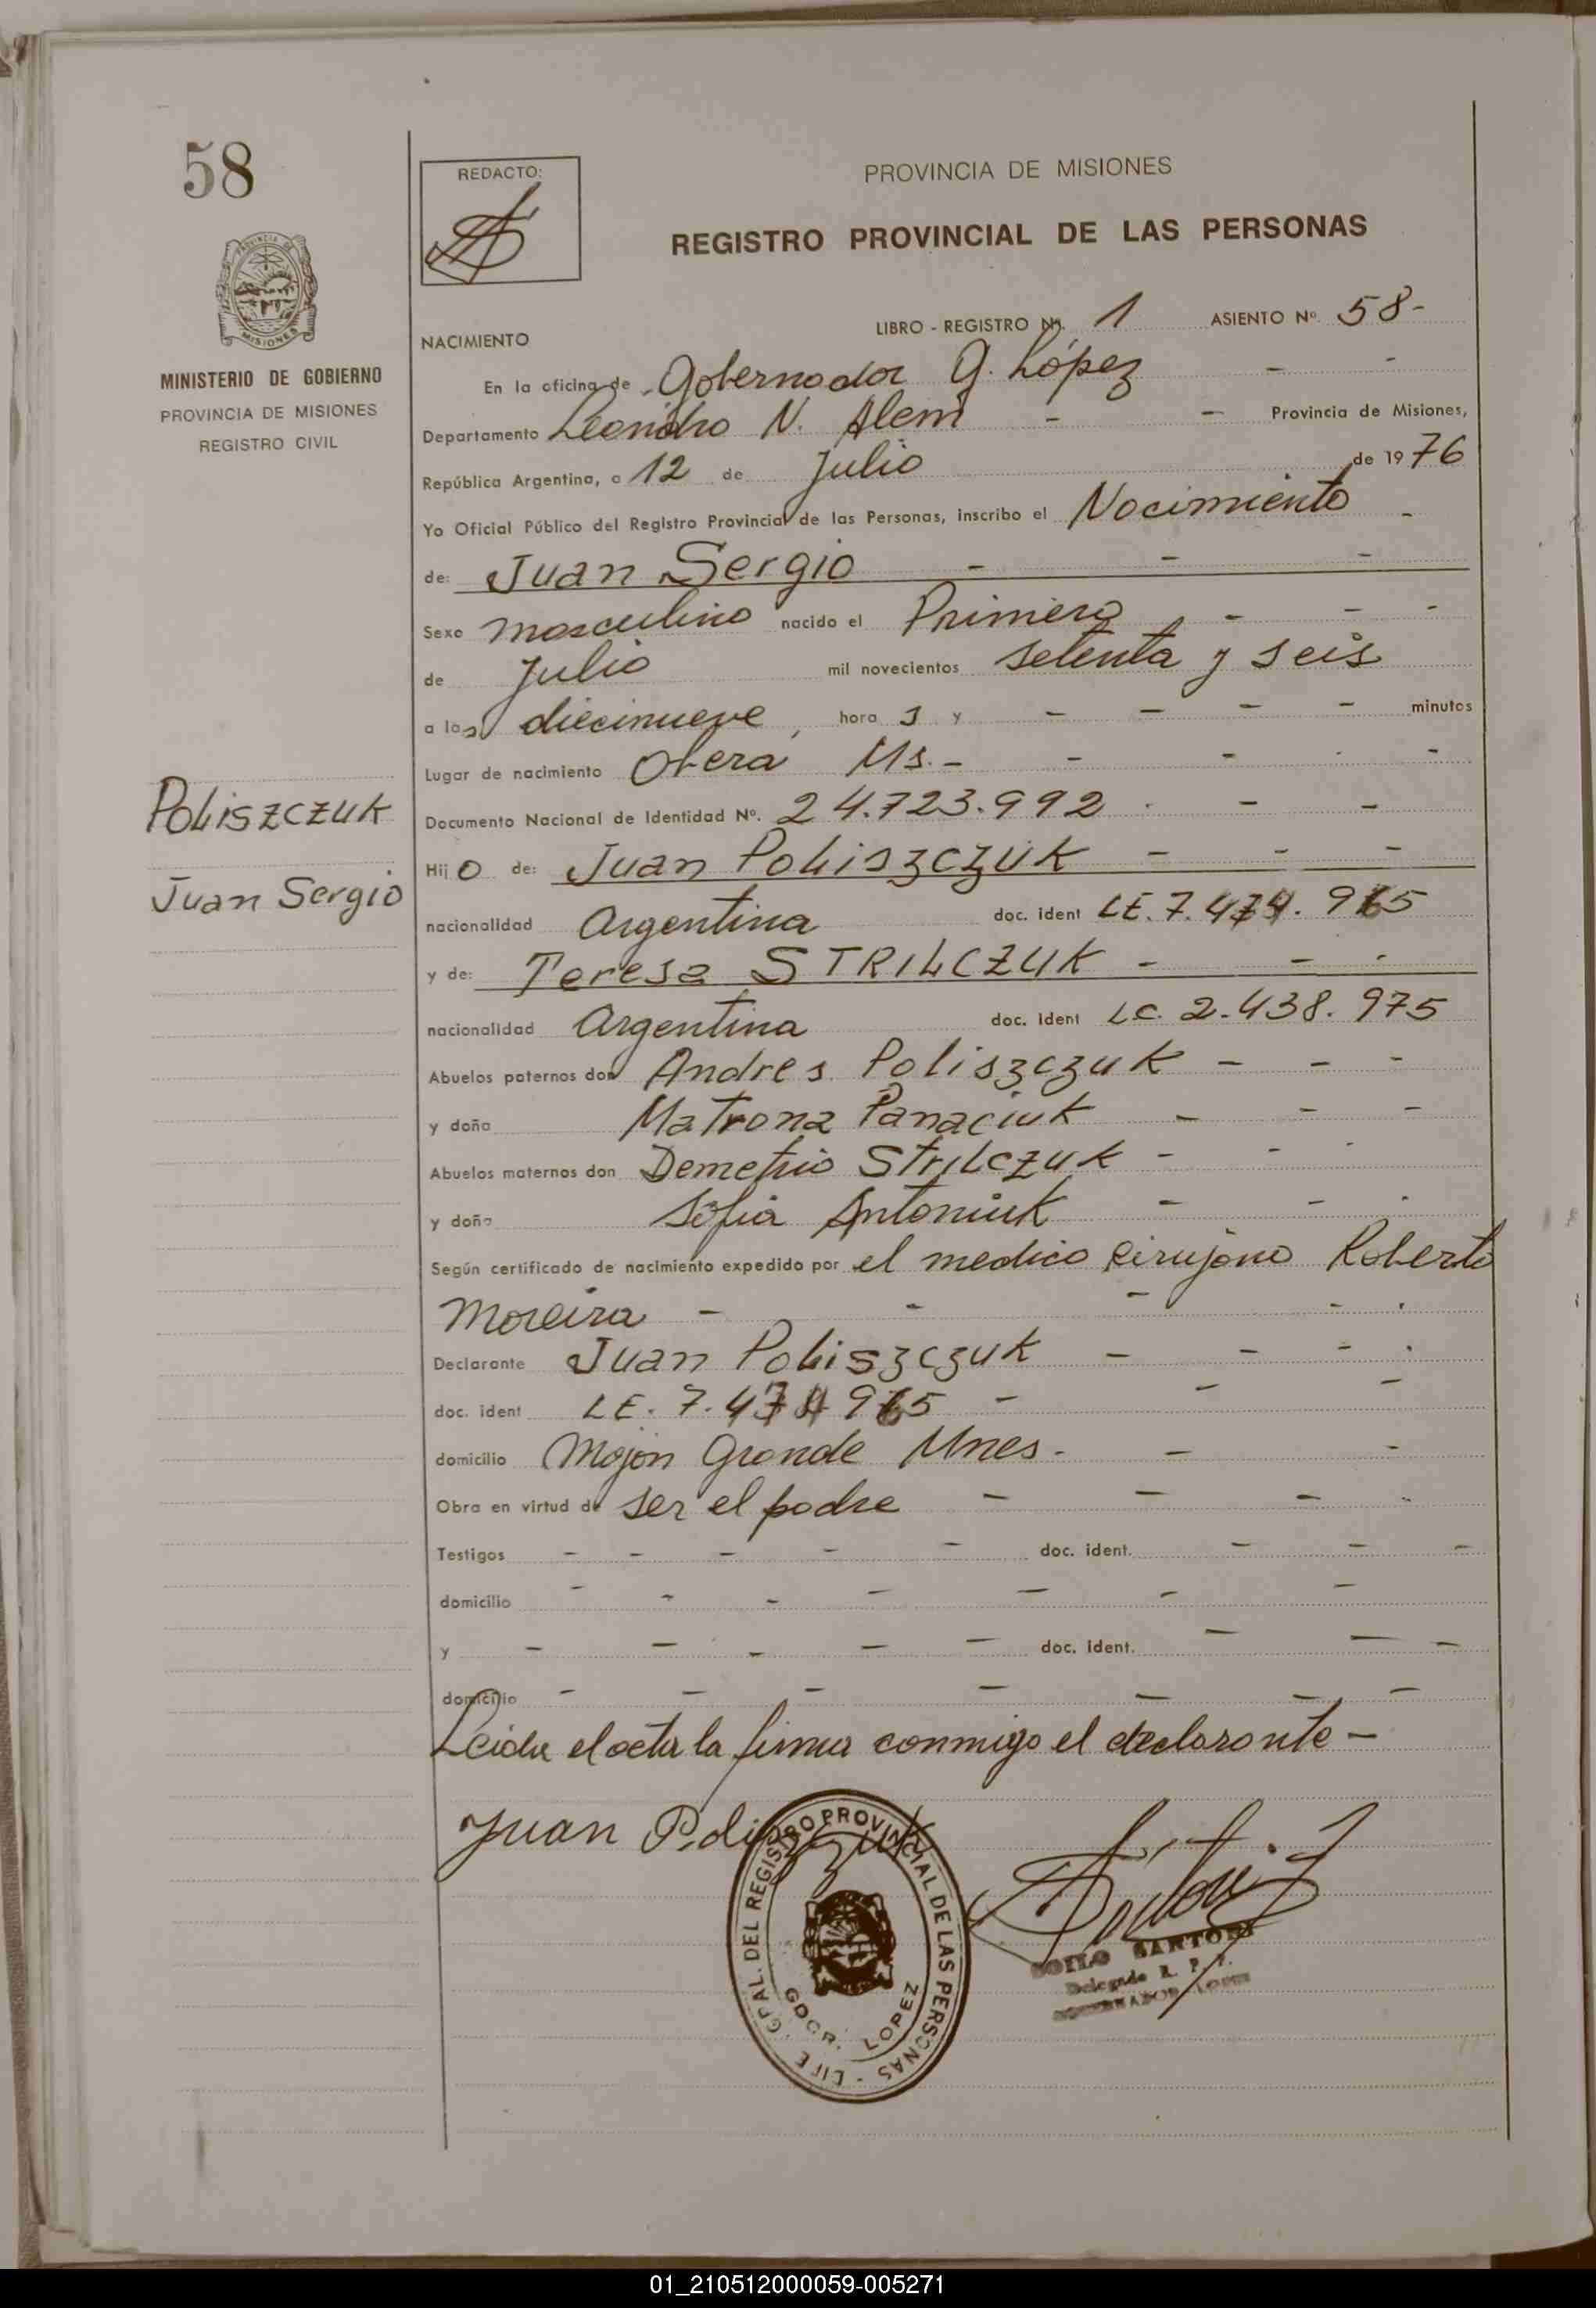 58
PROVINCIA DE
MISIONES
MINISTERIO DE GOBIERNO
PROVINCIA DE MISIONES
REGISTRO CIVIL
Poliszczuk
Juan Sergio
REDACTO:
PROVINCIA DE MISIONES
REGISTRO PROVINCIAL DE LAS PERSONAS
NACIMIENTO LIBRO - REGISTRO Nº. 1 ASIENTO Nº 58-
En la oficina de Gobernador G. López - -
Departamento Leandro N. Alem - - Provincia de Misiones,
República Argentina, a 12 de Julio de 1976
Yo Oficial Público del Registro Provincial de las Personas, inscribo el Nacimiento -
de: Juan Sergio - - -
Sexo masculino nacido el Primero - - -
de Julio mil novecientos setenta y seis
a las diecinueve, hora s y - - - - minutos
Lugar de nacimiento Oberá Ms.- - - -
Documento Nacional de Identidad Nº. 24.723.992 - -
Hijo de: Juan Poliszczuk - - -
nacionalidad Argentina doc. ident LE. 7.474.965
y de: Teresa STRILCZUK - - -
nacionalidad Argentina doc. ident LC. 2.438.975
Abuelos paternos don Andres Poliszczuk - - -
y doña Matrona Panaciuk - - -
Abuelos maternos don Demetrio Strilczuk - - -
y doña Sofia Antoniuk - - -
Según certificado de nacimiento expedido por el medico cirujano Roberto
Moreira - - - - -
Declarante Juan Poliszczuk - - - -
doc. ident LE. 7.474 965 - - -
domicilio Mojon Grande Mnes. - -
Obra en virtud de ser el padre - - - -
Testigos - - - - - doc. ident. - - -
domicilio - - - - - - -
y - - - - - doc. ident. - - -
domicilio - - - - - - -
Leida el acta la firma conmigo el declarante -
Juan Poliszczuk
GRAL. DEL REGISTRO PROVINCIAL DE LAS PERSONAS
GDOR. LOPEZ
SANTORI
Delegado R. P. P.
GOBERNADOR LOPEZ
01_210512000059-005271